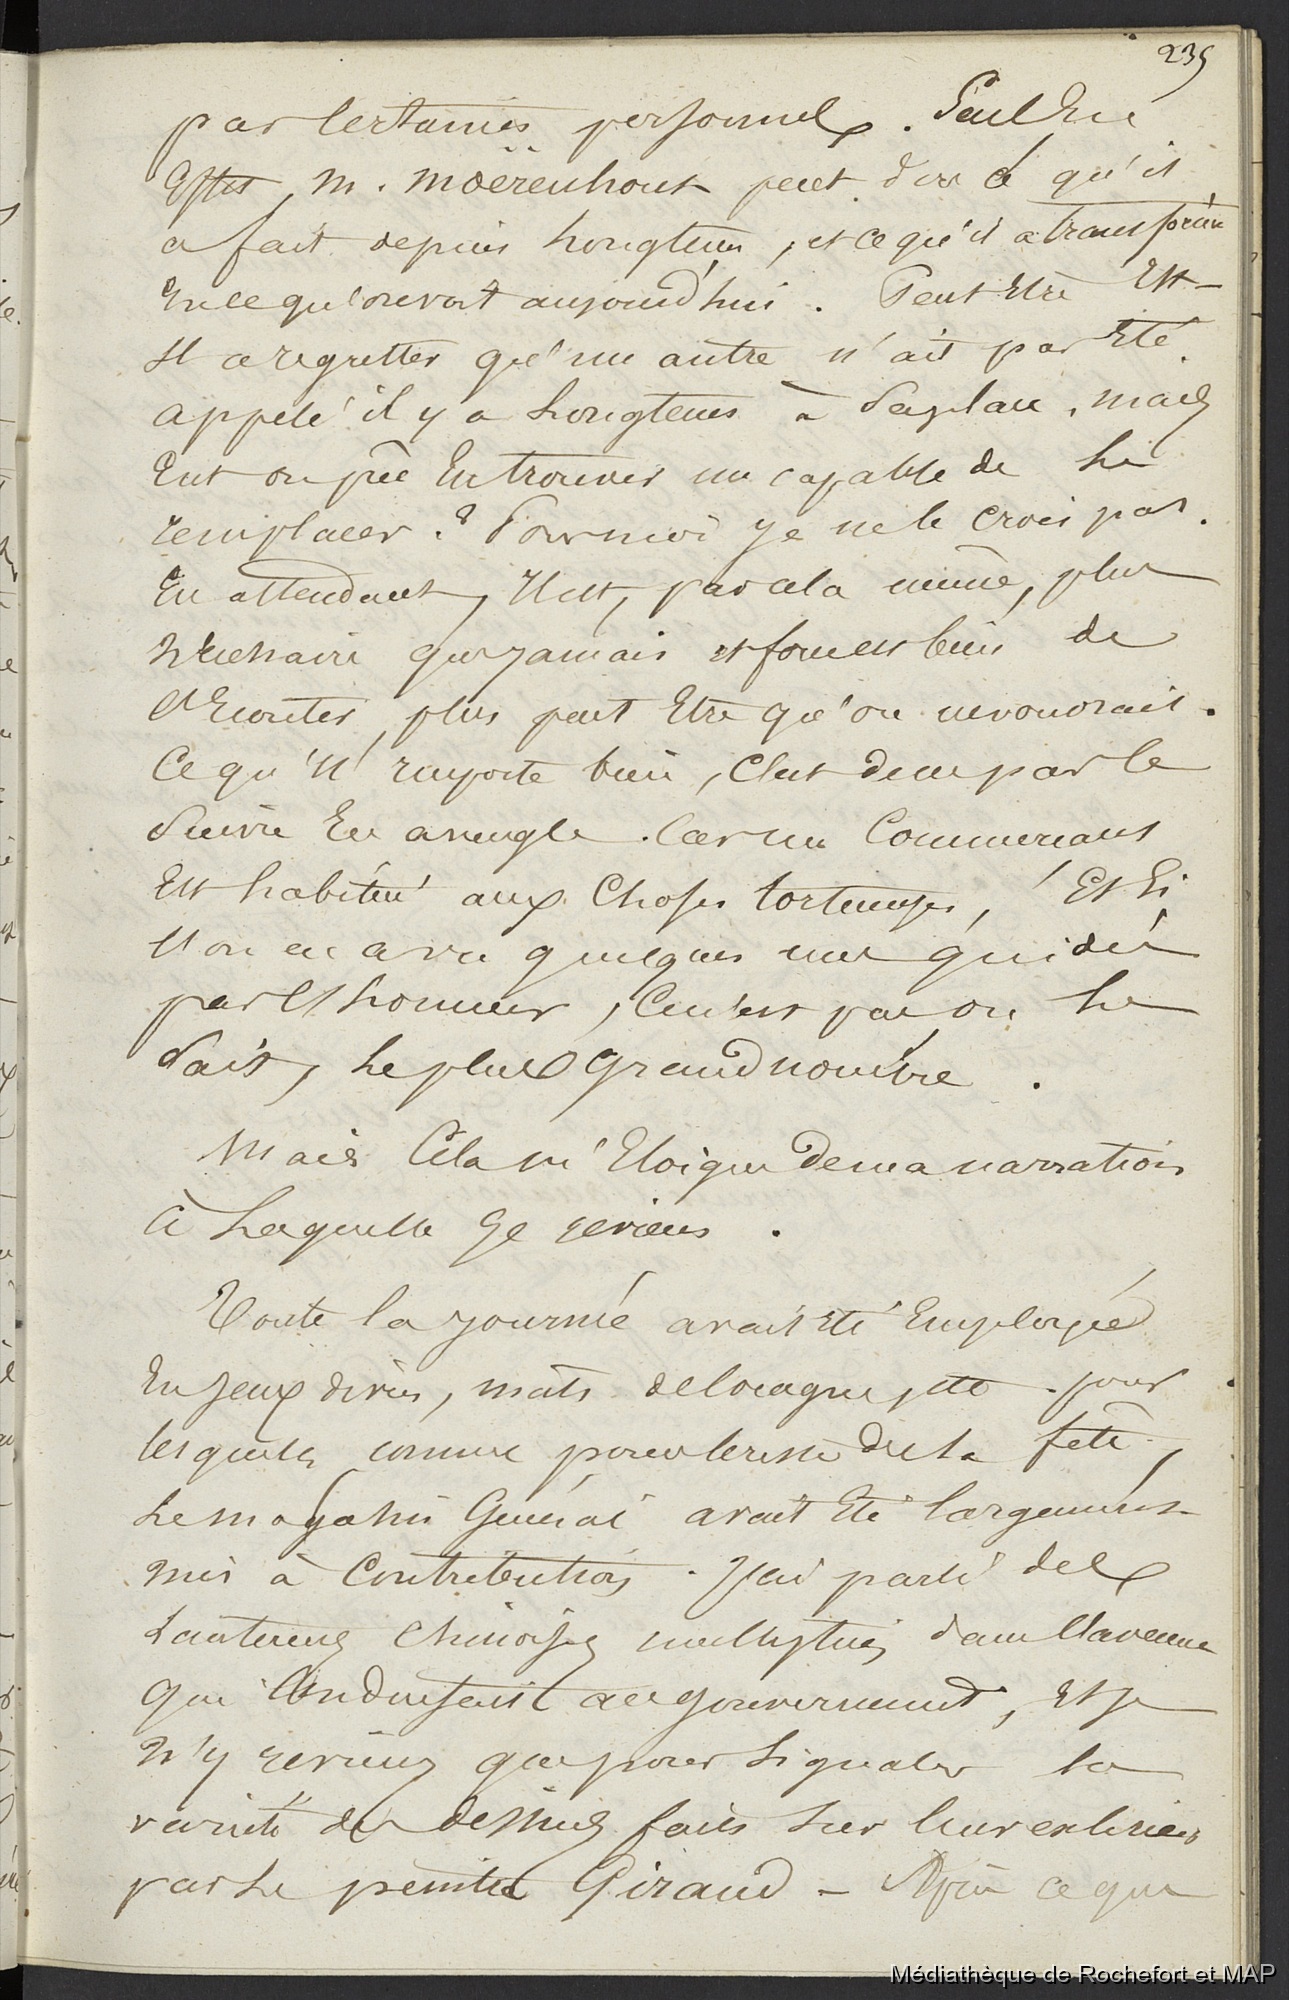 235
par certaines personnes. Seul en
effet, M. Moërenhout peut dire cé qu'il
a fait depuis longtems, et ce qu'il a transpiré
en ce qu'on voit aujourd'hui. Peut être est-
il a regretter qu'un autre n'ait pas été
appelé il y a longtems à sa place, mais
eut on pu en trouver un capable de le
remplacer? Pour moi je ne le crois pas.
En attendant, il est, par cela même, plus
nécessaire que jamais et force est bien de
l'écouter, plus peut être qu'on ne voudrait.
Ce qu'il importe bien, c'est de ne pas le
suivre en aveugle. Car un commerçant
est habitué aux choses tortueuses, et si
l'on en a vu quelques uns guidés
par l'honneur, ce n'est pas on le
sait, le plus grand nombre.
Mais cela m'éloigne de ma narration
à laquelle je reviens.
Toute la journée avait été employée
en jeux divers, mâts de cocagne, etc. pour
lesquels, comme pour le reste de la fête,
le magasin général avait été largement
mis à contribution. J'ai parlé des
lanternes chinoises multipliées dans l'avenue
qui conduisait au gouvernement, et je
n'y reviens que pour signaler la
variété des dessins faits sur leurs
par le peintre Giraud – Après ce que
Médiathèque de Rochefort et MAP